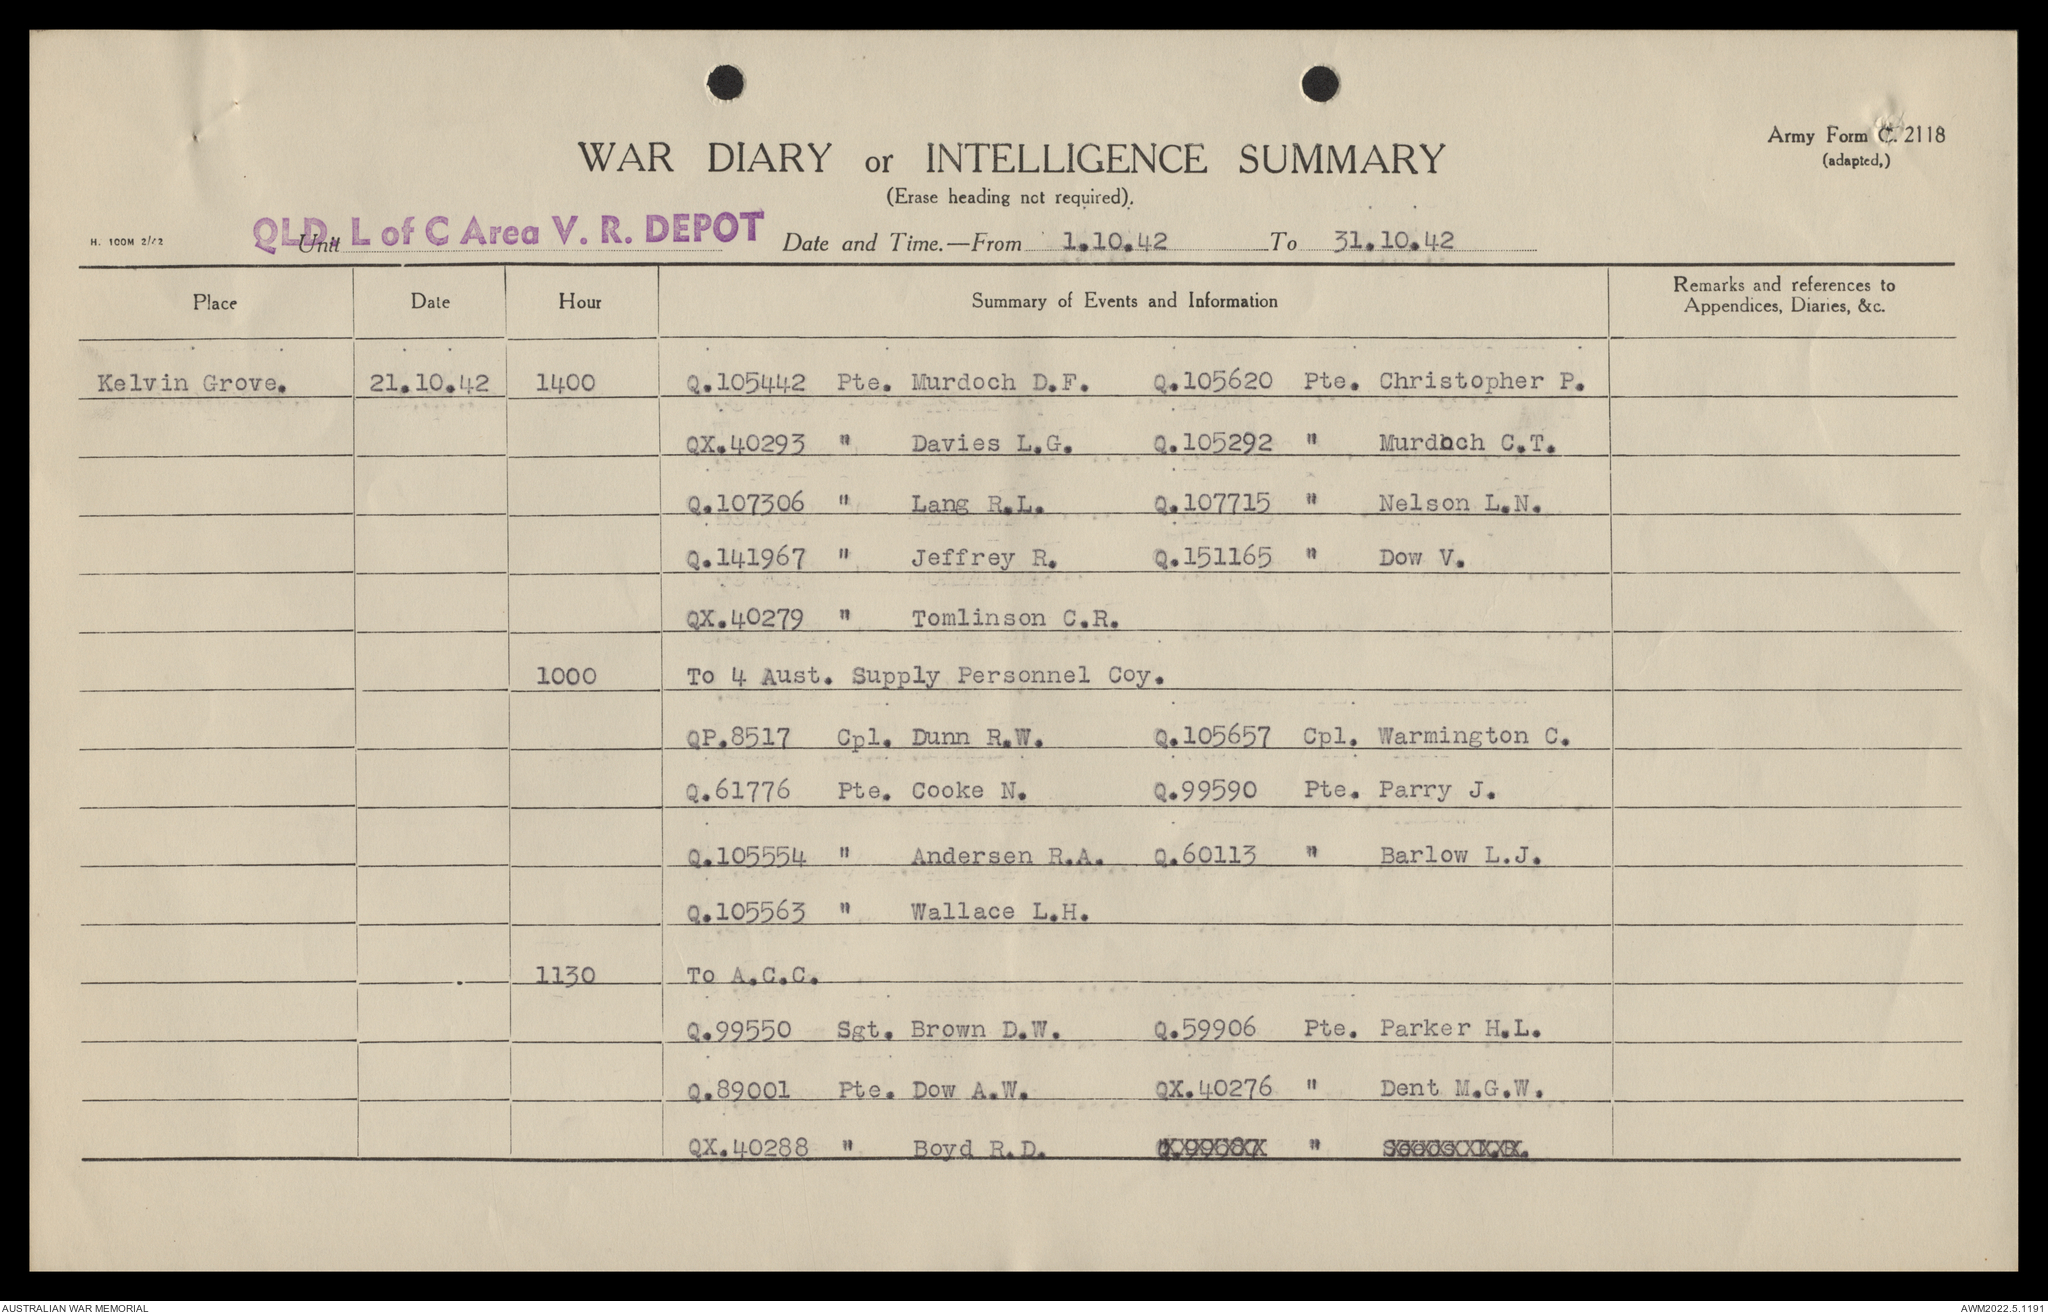 Army Form C. 2118
(adapted,)
WAR DIARY or INTELLIGENCE SUMMARY
(Erase heading not required).
H. 100M 2/42
Unit QLD. L of C Area V. R. DEPOT Date and Time.—From 1.10.42 To 31.10.42
Place Date Hour Summary of Events and Information Remarks and references to
Appendices, Diaries, &c.
Kelvin Grove. 21.10.42 1400 Q.105442 Pte. Murdoch D.F. Q.105620 Pte. Christopher P.
QX.40293 " Davies L.G. Q.105292 " Murdoch C.T.
Q.107306 " Lang R.L. Q.107715 " Nelson L.N.
Q.141967 " Jeffrey R. Q.151165 " Dow V.
QX.40279 " Tomlinson C.R.
1000 To 4 Aust. Supply Personnel Coy.
QP.8517 Cpl. Dunn R.W. Q.105657 Cpl. Warmington C.
Q.61776 Pte. Cooke N. Q.99590 Pte. Parry J.
Q.105554 " Andersen R.A. Q.60113 " Barlow L.J.
Q.105563 " Wallace L.H.
1130 To A.C.C.
Q.99550 Sgt. Brown D.W. Q.59906 Pte. Parker H.L.
Q.89001 Pte. Dow A.W. QX.40276 " Dent M.G.W.
QX.40288 " Boyd R.D. "
AUSTRALIAN WAR MEMORIAL AWM2022.5.1191